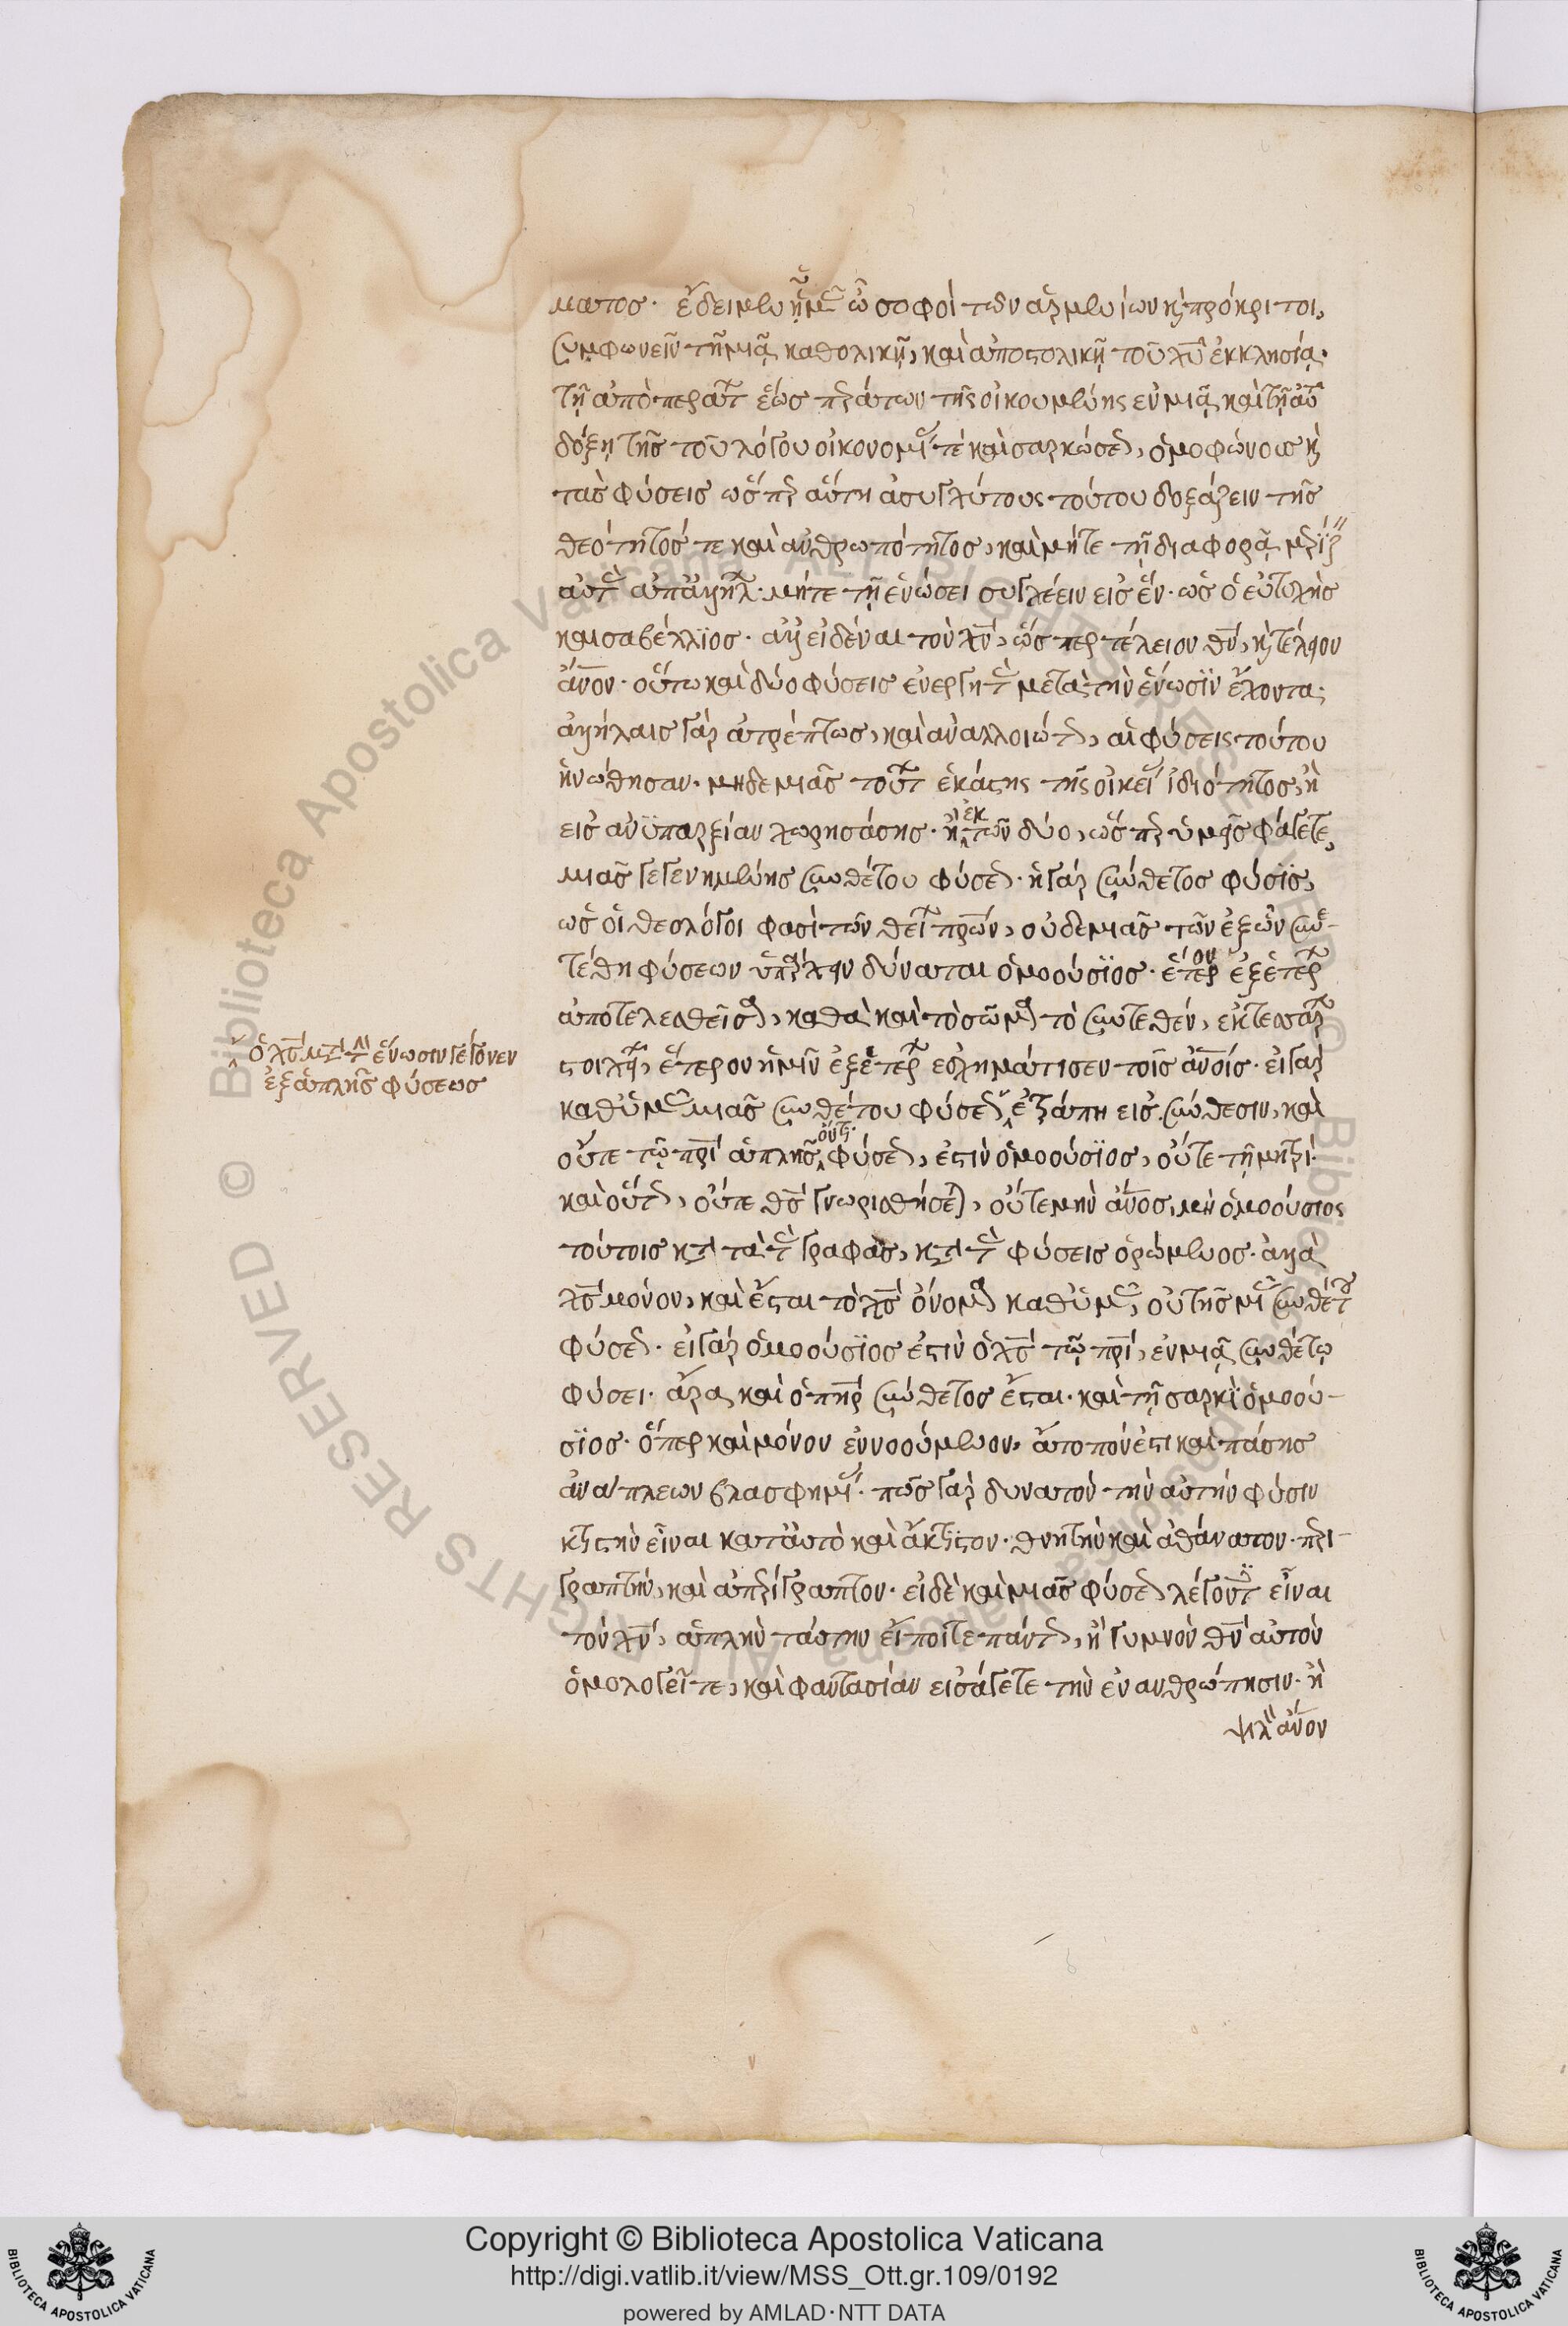 ματος. ἔδει μὲν ἡμᾶς ὦ σοφοὶ τῶν ἀρμενίων καὶ πρόκριτοι,
συμφωνεῖν τῇ μιᾷ καθολικῇ, καὶ ἀποστολικῇ τοῦ χῦ ἐκκλησίᾳ.
τῇ ἀπὸ περάτων ἕως περάτων τῆς οἰκουμένης ἐν μιᾷ καὶ τῇ αὐτῇ
δόξῃ τῆς τοῦ λόγου οἰκονομίας τὲ καὶ σαρκώσεως, ὁμοφώνως καὶ
τὰς φύσεις ὥσπερ αὕτη ἀσυγχύτους τούτου δοξάζειν τῆς
θεότητός τε καὶ ἀνθρωπότητος, καὶ μήτε τῇ διαφορᾷ μερίζειν
αὐτὰς ἀπαλλήλων. μήτε τῇ ἑνώσει συγχέειν εἰς ἕν. ὡς ὁ εὐτυχὴς
καὶ σαβέλλϊος. ἀλλ εἰδέναι τὸν χν, ὥσπερ τέλειον θν, καὶ τέλειον
ἄνον. οὕτω καὶ δύο φύσεις ἐνεργητὰς μετὰ τὴν ἕνωσϊν ἔχοντα.
ἀλλήλαις γὰρ ἀτρέπτως, καὶ ἀναλλοιώτως, αἱ φύσεις τούτου
ἡνώθησαν. μηδεμιᾶς τούτων ἑκάστης τῆς οἰκείας ἰδιότητος, ἢ
εἰς ἀνϋπαρξίαν χωρησάσης. ἢ ἐκ τῶν δύο, ὥσπερ ὑμεῖς φάγετε,
μιᾶς γεγενημένης συνθέτου φύσεως. ἡ γὰρ σύνθετος φύσϊς,
ὡς οἱ θεολόγοι φασὶ τῶν θείων πρων, οὐδεμιᾶς τῶν ἐξ ὧν συνε-
τέθη φύσεων ὑπάρχειν δύναται ὁμοούσϊος. ἕτερον ἐξ ἑτέρων
ἀποτελεσθεῖσα, καθὰ καὶ τὸ σῶμα τὸ συντεθὲν, ἐκ τεσσάρων
στοιχείων, ἕτερον ἡμῖν ἐξ ἑτέρων ἐσχημάτισεν τοῖς ἀνοίς. εἰ γὰρ
καθ ὑμᾶς μιᾶς συνθέτου φύσεως, ἐτράπη εἰς σύνθεσιν, καὶ
οὔτε τῷ πρι ἁπλῆς ὄντι φύσεως, ἐστὶν ὁμοούσϊος, οὔτε τῇ μητρί.
καὶ οὕτως, οὔτε θς γνωρισθήσεται, οὔτε μὴν ἄνος, μὴ ὁμοούσιος
τούτοις κατὰ τὰς γραφὰς, κατὰ τὰς φύσεις ὁρώμενος. ἀλλὰ
χς μόνον, καὶ ἔσται τὸ χς ὄνομα καθ ὑμᾶς, οὐ τῆς μιᾶς συνθέτου
φύσεως. εἰ γὰρ ὁμοούσϊος ἐστὶν ὁ χς τῷ πρι, ἐν μιᾷ συνθέτῳ
φύσει. ἄρα καὶ ὁ πηρ σύνθετος ἔσται. καὶ τῇ σαρκὶ ὁμοού-
σϊος. ὅπερ καὶ μόνον ἐννοούμενον, ἄτοπόν ἐστι καὶ πάσης
ἀνάπλεων βλασφημίας. πῶς γὰρ δυνατὸν τὴν αὐτὴν φύσιν
κτιστὴν εἶναι κατ αὐτὸ καὶ ἄκτϊστον. θνητὴν καὶ ἀθάνατον. περι-
γραπτὴν, καὶ ἀπερίγραπτον. εἰ δὲ καὶ μιᾶς φύσεως λέγοντες εἶναι
τὸν χν, ἁπλὴν ταύτην εἴποιτε πάντως, ἢ γυμνὸν θν αὐτὸν
ὁμολογεῖτε, καὶ φαντασίαν εἰσάγετε τὴν ἐνανθρώπησιν. ἢ
ψιλὸν ἄνον
ὁ χς μετὰ τὴν ἕνωσιν γέγονεν
ἐξ ἁπλῆς φύσεως
Copyright © Biblioteca Apostolica Vaticana
http://digi.vatlib.it/view/MSS_Ott.gr.109/0192
powered by AMLAD·NTT DATA
BIBLIOTECA APOSTOLICA VATICANA
BIBLIOTECA APOSTOLICA VATICANA
Biblioteca Apostolica Vaticana ALL RIGHTS RESERVED ©